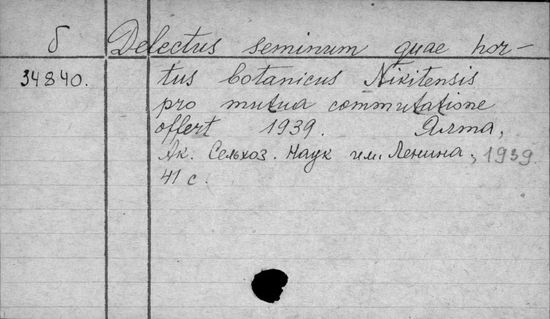 б Delectus seminum quae hor-
34840. tus botanicus Nikitensis
pro mutua commutatione
offert 1939. Ялта,
Ак. Сельхоз. Наук им. Ленина, 1939.
41 с.